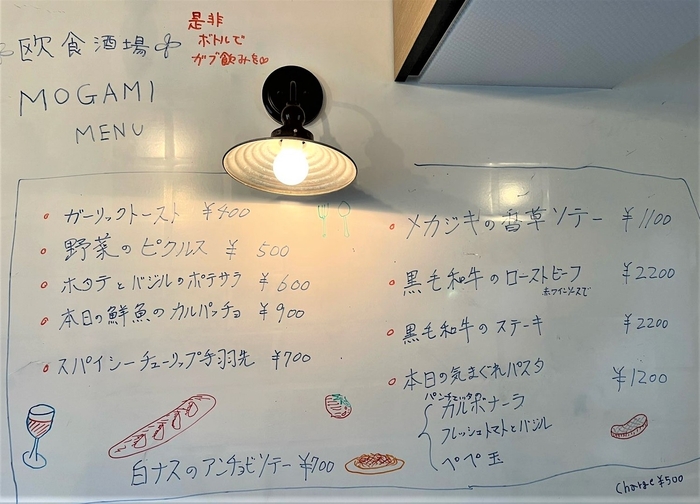 欧食酒場
是非
ボトルで
ガブ飲みを∞
MOGAMI
MENU
ガーリックトースト ¥400
野菜のピクルス ¥500
ホタテとバジルのポテサラ ¥600
本日の鮮魚のカルパッチョ ¥900
スパイシーチューリップ手羽先 ¥700
白ナスのアンチョビソテー ¥700
メカジキの香草ソテー ¥1100
黒毛和牛のローストビーフ ¥2200
赤ワインソースで
黒毛和牛のステーキ ¥2200
本日の気まぐれパスタ ¥1200
パンチェッタの
カルボナーラ
フレッシュトマトとバジル
ペペ玉
Charge ¥500